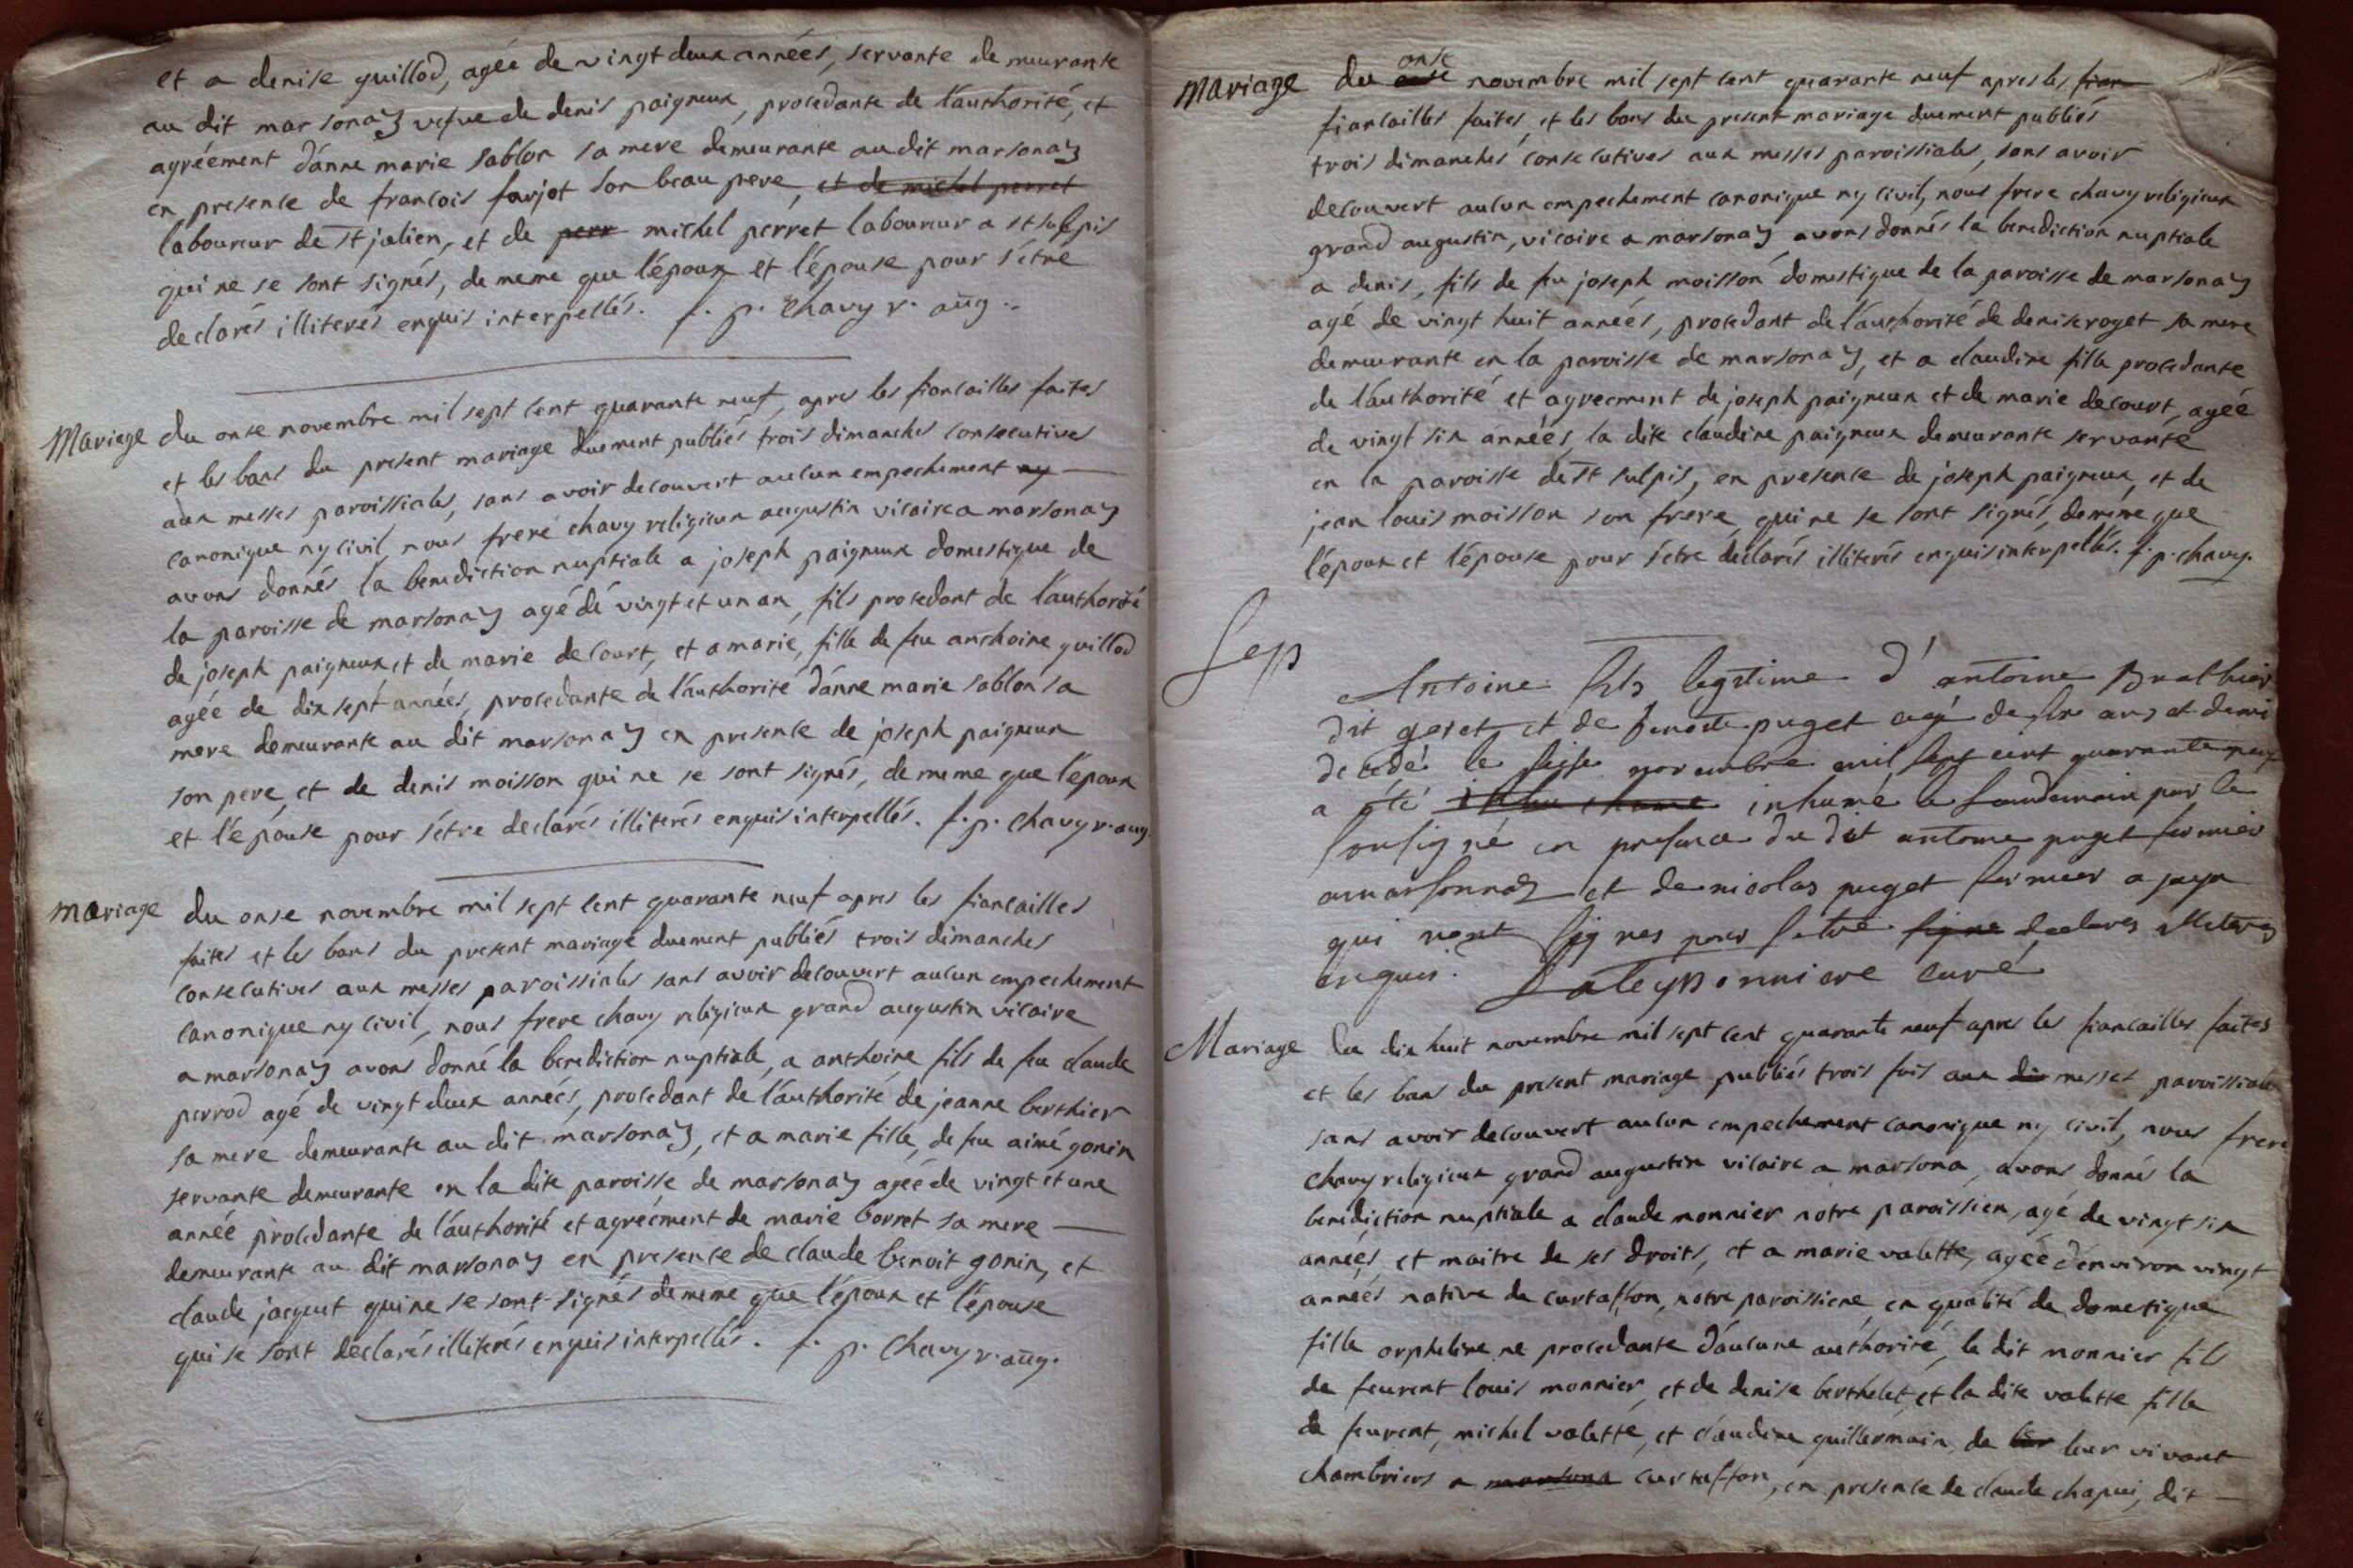 et a denise guillod, agée de vingt deux années, servante demeurante
au dit marsonaz vefve de denis paigneux, procedante de l'authorité, et
agréement d'anne marie sablon sa mere demeurante au dit marsonaz
en presence de francois farjot son beau pere, et de michel perret
laboureur de st julien, et de perr michel perret laboureur a st sulpis
qui ne se sont signés, de meme que l'époux et l'épouse pour s'étre
declarés illiterés enquis interpellés. f. p. Chavy r. aug.
Mariage du onse novembre mil sept cent quarante neuf, apres les fiancailles faites
et les bans du present mariage duement publiés trois dimanches consecutives
aux messes paroissiales, sans avoir decouvert aucun empechement ny
canonique ny civil, nous frere chavy religieux augustin vicaire a marsonaz
avons donnés la benediction nuptiale a joseph paigneux domestique de
la paroisse de marsonaz agé de vingt et un an, fils procedant de l'authorité
de joseph paigneux et de marie decourt, et a marie, fille de feu anthoine guillod
agée de dix sept années, procedante de l'authorité d'anne marie sablon sa
mere demeurante au dit marsonaz en presence de joseph paigneux
son pere, et de denis moisson qui ne se sont signés, de meme que l'époux
et l'épouse pour s'étre declarés illiterés enquis interpellés. f. p. chavy r. aug.
mariage du onse novembre mil sept cent quarante neuf apres les fiancailles
faites et les bans du present mariage duement publiés trois dimanches
consecutives aux messes paroissiales sans avoir decouvert aucun empechement
canonique ny civil, nous frere chavy religieux grand augustin vicaire
a marsonaz avons donné la benediction nuptiale, a anthoine fils de feu claude
perrod agé de vingt deux années, procedant de l'authorité de jeanne berthier
sa mere demeurante au dit marsonaz, et a marie fille, de feu aimé gonin
servante demeurante en la dite paroisse de marsonaz agée de vingt et une
année procedante de l'authorité et agréement de marie borret sa mere
demeurante au dit marsonaz en presence de claude benoit gonin, et
claude jacquet qui ne se sont signés de meme que l'époux et l'épouse
qui se sont declarés illiterés enquis interpellés. f. p. Chavy r. aug.
mariage du onse onse novembre mil sept cent quarante neuf apres les fian
fiancailles faites, et les bans du present mariage duement publiés
trois dimanches consecutives aux messes paroissiales, sans avoir
decouvert aucun empechement canonique ny civil, nous frere chavy religieux
grand augustin, vicaire a marsonaz avons donnés la benediction nuptiale
a denis, fils de feu joseph moisson domestique de la paroisse de marsonaz
agé de vingt huit années, procedant de l'authorité de denise roget sa mere
demeurante en la paroisse de marsonaz, et a claudine fille procedante
de l'authorité et agreement de joseph paigneux et de marie decourt, agée
de vingt six années, la dite claudine paigneux demeurante servante
en la paroisse de st sulpis, en presence de joseph paigneux, et de
jean louis moisson son frere, qui ne se sont signés, de meme que
l'époux et l'épouse pour s'étre declarés illiterés enquis interpellés. f. p. chavy.
Sep
Antoine fils legitime d'antoine
dit geret et de benoite puget agé de six ans et demi
decedé le seise novembre mil sept cent quarante neuf
a été inhumé le lendemain par le
soussigné en presence du dit antoine puget fermier
a marsonnaz et de nicolas puget fermier a jaya
qui n'ont signes pour s'etre signe declares illiteres
enquis. Curé
Mariage du dix huit novembre mil sept cent quarante neuf apres les fiancailles faites
et les bans du present mariage publiés trois fois aux di messes paroissiales
sans avoir decouvert aucun empechement canonique ny civil, nous frere
chavy religieux grand augustin vicaire a marsona, avons donnés la
benediction nuptiale a claude monnier notre paroissien, agé de vingt six
années, et maitre de ses droits, et a marie valette, agée d'environ vingt
années native de curtaffon, notre paroissiene en qualité de domestique
fille orpheline ne procedante d'aucune authorité, le dit monnier fils
de feurent louis monnier, et de denise berthelet, et la dite valette fille
de feurent, michel valette, et claudine guillermain de leur leur vivant
chambriers a marsona curtaffon, en presence de claude chapui, dit